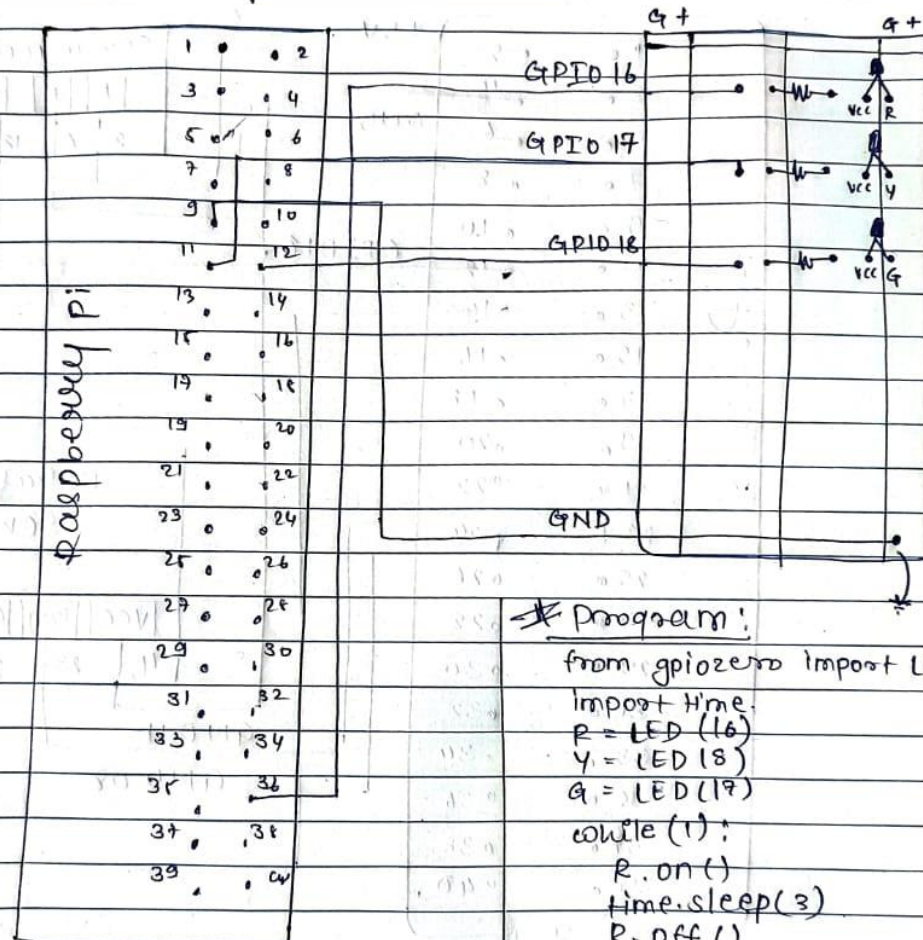 G +
G +
1 2
3 4
5 6
7 8
9 10
11 12
13 14
15 16
17 18
19 20
21 22
23 24
25 26
27 28
29 30
31 32
33 34
35 36
37 38
39
Raspberry Pi
GPIO 16
GPIO 17
GPIO 18
GND
VCC R
VCC Y
VCC G
* Program:
from gpiozero import L
import time
R = LED (16)
Y = LED 18)
G = LED (17)
while (1):
R.on()
time.sleep(3)
R.off()